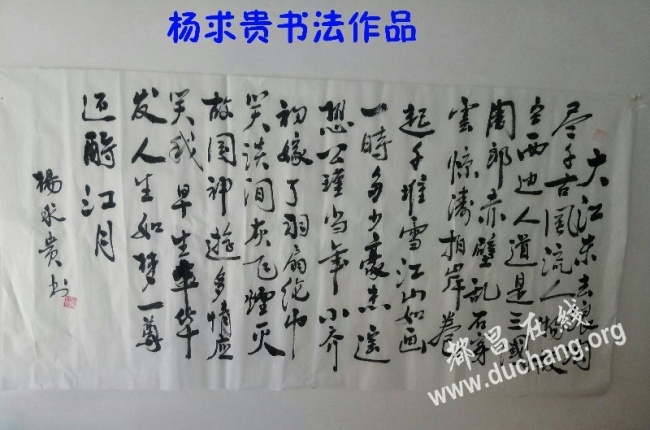 杨求贵书法作品
大江东去浪淘
尽千古风流人物故
垒西边人道是三國
周郎赤壁乱石穿
雲惊涛拍岸卷
起千堆雪江山如画
一時多少豪杰遥
想公瑾当年小乔
初嫁了羽扇纶巾
笑谈间灰飞煙灭
故国神遊多情应
笑我早生华
发人生如梦一尊
还酹江月
楊求贵书
都昌在线
www.duchang.org